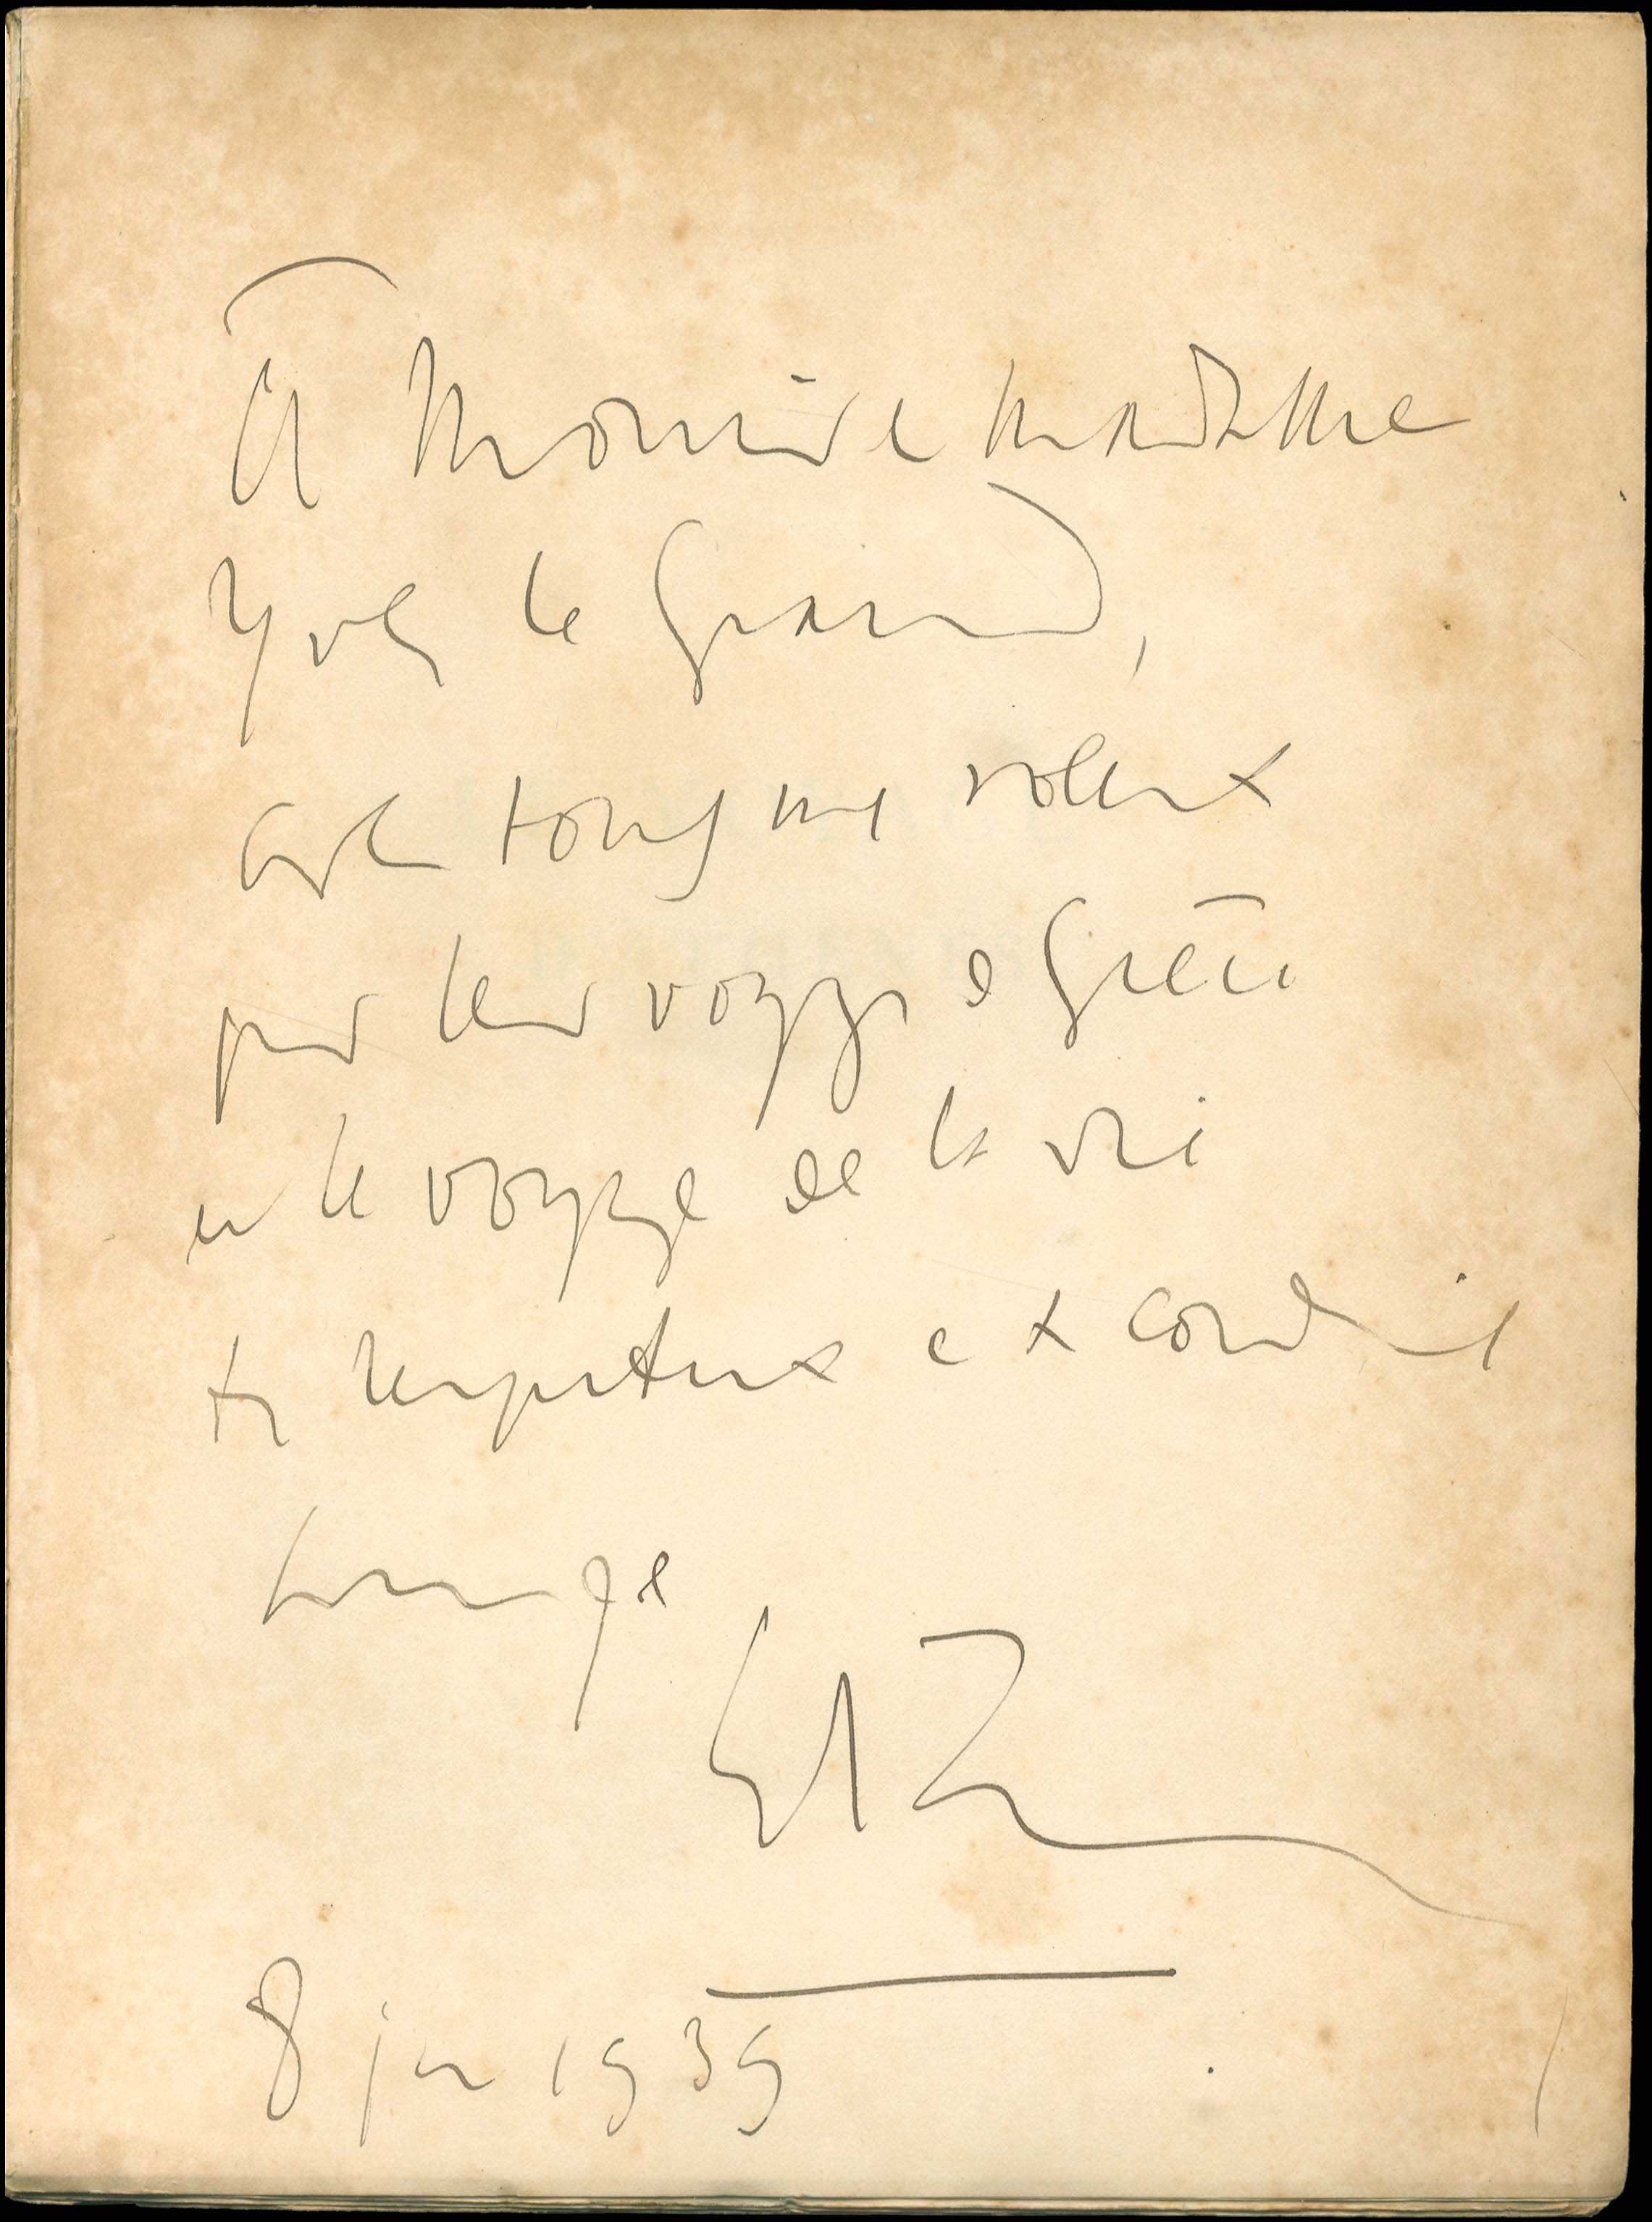 A Monsieur e Madame
Yves le Grand,
avec tous mes voeux
pour leur voyage de Grèce
et le voyage de la vie
très respectueux et cordial
hommage
8 juin 1939